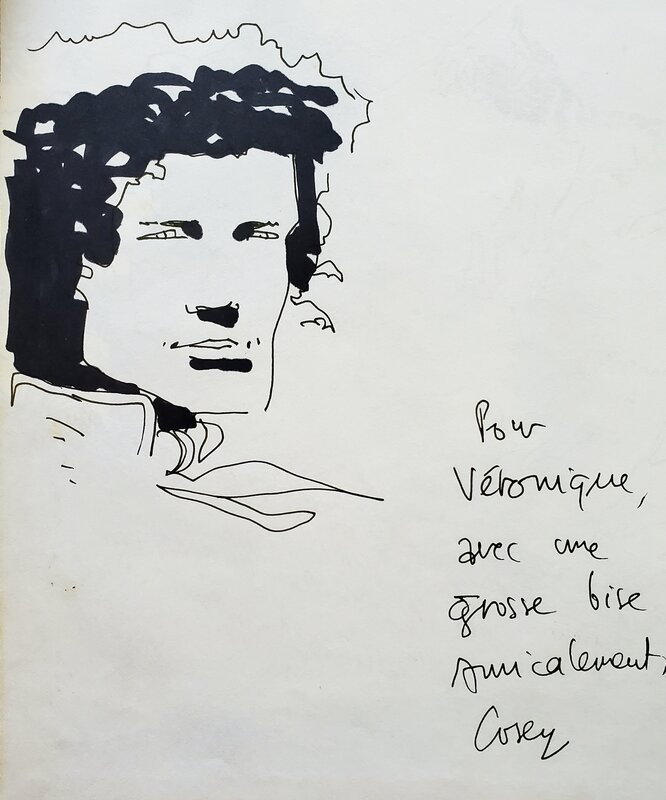 Pour
Véronique,
avec une
grosse bise
Amicalement,
Cosey